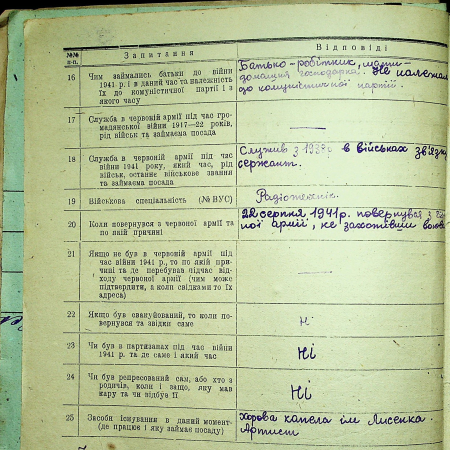 №№ п-п. Запитання Відповіді
16 Чим займались батьки до війни
1941 р. і в даний час та належність
їх до комуністичної партії і з
якого часу
Батько-робітник, мати-
домашня господарка. Не належал
до комуністичної партії.
17 Служба в червоній армії під час гро-
мадянської війни 1917—22 років,
рід військ та займаєма посада
—
18 Служба в червоній армії під час
війни 1941 року, який час, рід
військ, останнє військове звання
та займаєма посада
Служив з 1939 в військах зв'язку
сержант.
19 Військова спеціяльність (№ ВУС)
Радіотехнік.
20 Коли повернувся з червоної армії та
по якій причині
22 серпня 1941р. повернувся з
ної армії, не захотівши
21 Якщо не був в червоній армії під
час війни 1941 р., то по якій при-
чині та де перебував підчас від-
ходу червоної армії (чим може
підтвердити, а коли свідками то їх
адреса)
—
22 Якщо був евакуйований, то коли по-
вернувся та звідки саме
Ні
23 Чи був в партизанах під час війни
1941 р. та де саме і який час
Ні
24 Чи був репресований сам, або хто з
родичів, коли і защо, яку мав
кару та чи відбув її
Ні
25 Засоби існування в даний момент-
(де працює і яку займає посаду)
Хорова капела ім Лисенка.
Артист